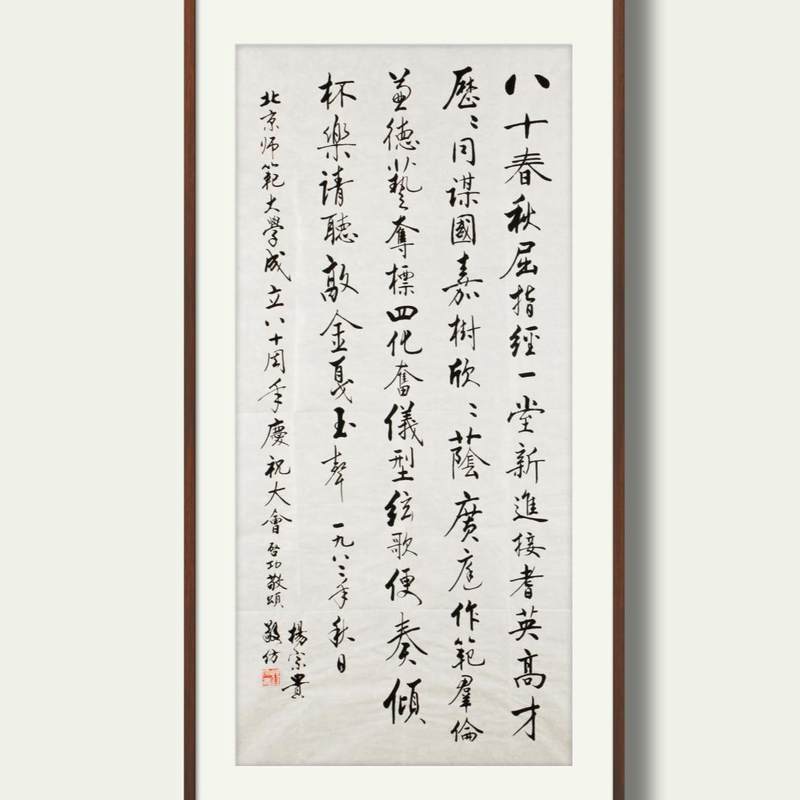 八十春秋屈指經一堂新進接耆英高才
歷歷同謀國嘉樹欣欣蔭廣庭作範群倫
兼德藝奪標四化奮儀型弦歌便奏傾
杯樂請聽敲金戛玉聲 一九八二年秋日
北京师範大學成立八十周年慶祝大會 啓功敬頌
楊宗貴
敬仿